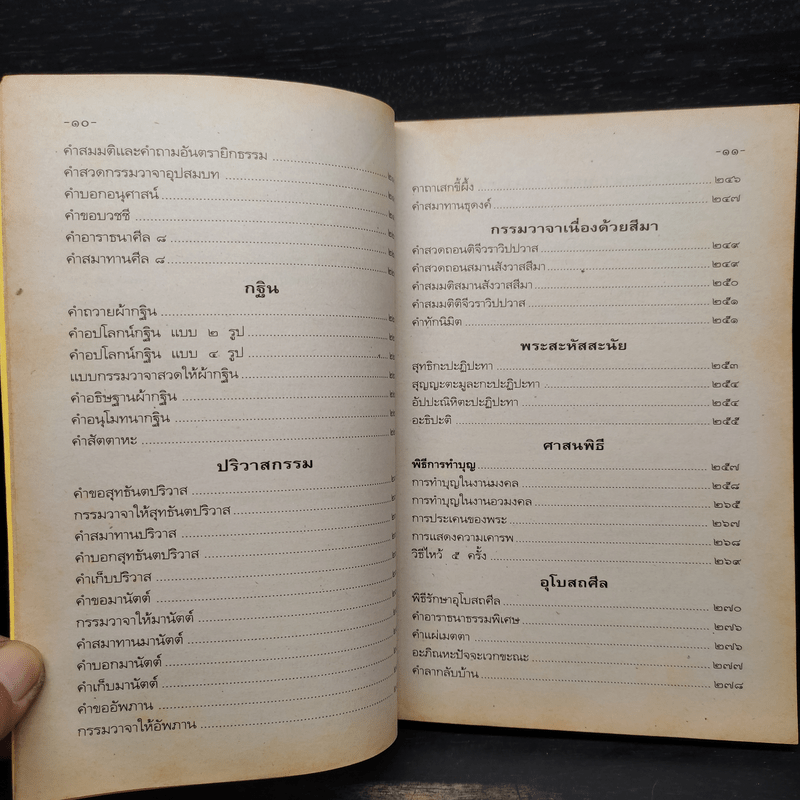 -๑๐-
คำสมมติและคำถามอันตรายิกธรรม
คำสวดกรรมวาจาอุปสมบท
คำบอกอนุศาสน์
คำขอบวชชี
คำอาราธนาศีล ๘
คำสมาทานศีล ๘
กฐิน
คำถวายผ้ากฐิน
คำอปโลกน์กฐิน แบบ ๒ รูป
คำอปโลกน์กฐิน แบบ ๔ รูป
แบบกรรมวาจาสวดให้ผ้ากฐิน
คำอธิษฐานผ้ากฐิน
คำอนุโมทนากฐิน
คำสัตตาหะ
ปริวาสกรรม
คำขอสุทธันตปริวาส
กรรมวาจาให้สุทธันตปริวาส
คำสมาทานปริวาส
คำบอกสุทธันตปริวาส
คำเก็บปริวาส
คำขอมานัตต์
กรรมวาจาให้มานัตต์
คำสมาทานมานัตต์
คำบอกมานัตต์
คำเก็บมานัตต์
คำขออัพภาน
กรรมวาจาให้อัพภาน
-๑๑-
คาถาเสกขี้ผึ้ง ๒๔๖
คำสมาทานธุดงค์ ๒๔๗
กรรมวาจาเนื่องด้วยสีมา
คำสวดถอนติจีวราวิปปวาส ๒๔๙
คำสวดถอนสมานสังวาสสีมา ๒๔๙
คำสมมติสมานสังวาสสีมา ๒๕๐
คำสมมติติจีวราวิปปวาส ๒๕๑
คำทักนิมิต ๒๕๑
พระสะหัสสะนัย
สุทธิกะปะฏิปะทา ๒๕๓
สุญญะตะมูละกะปะฏิปะทา ๒๕๔
อัปปะณิหิตะปะฏิปะทา ๒๕๔
อะธิปะติ ๒๕๕
ศาสนพิธี
พิธีการทำบุญ ๒๕๗
การทำบุญในงานมงคล ๒๕๘
การทำบุญในงานอวมงคล ๒๖๕
การประเคนของพระ ๒๖๗
การแสดงความเคารพ ๒๖๘
วิธีไหว้ ๕ ครั้ง ๒๖๙
อุโบสถศีล
พิธีรักษาอุโบสถศีล ๒๗๐
คำอาราธนาธรรมพิเศษ ๒๗๖
คำแผ่เมตตา ๒๗๖
อะภิณหะปัจจะเวกขะณะ ๒๗๗
คำลากลับบ้าน ๒๗๘